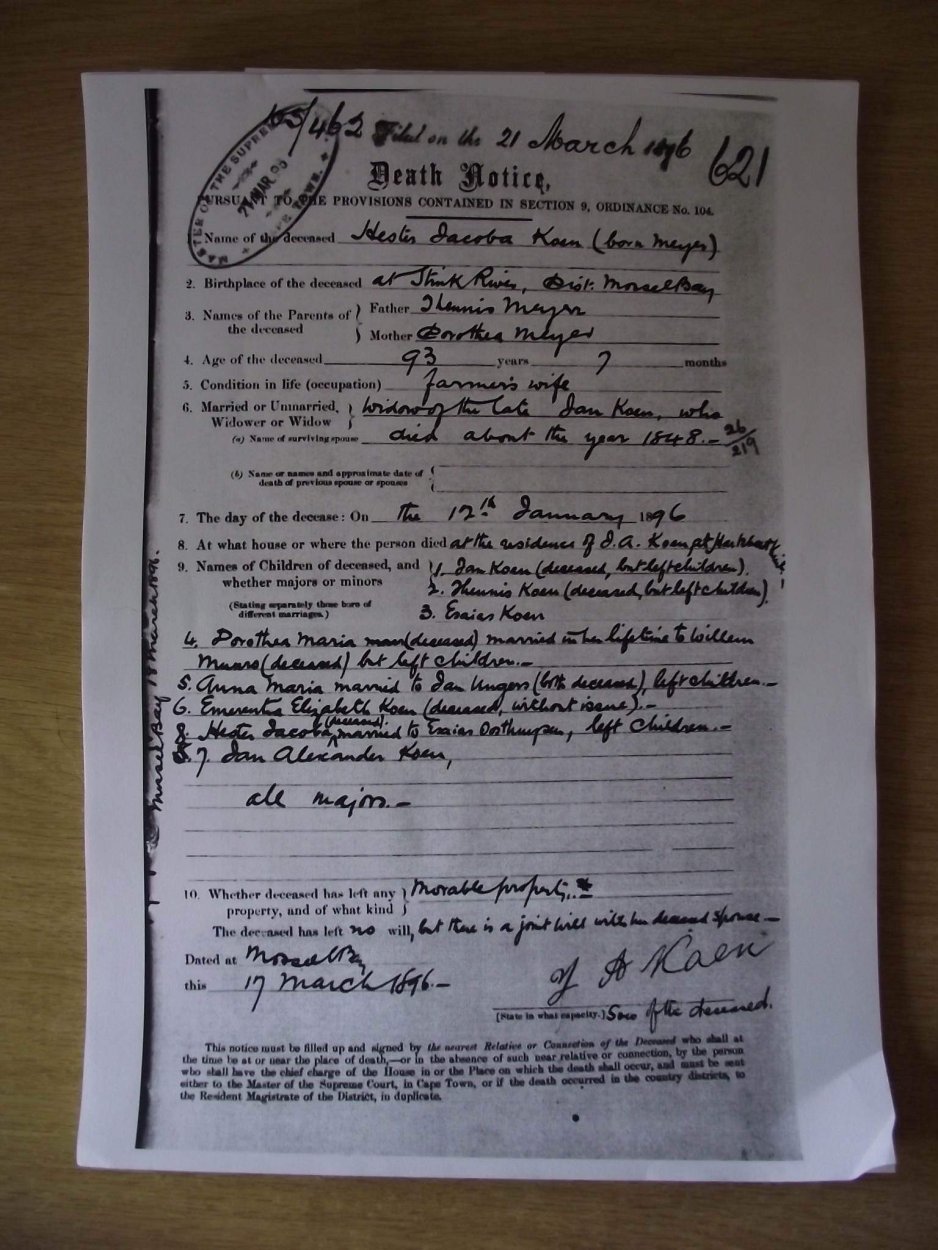 65/462 Filed on the 21 March 1896 621
MASTER OF THE SUPREME
21 MAR 96
TOWN.
Death Notice,
PURSUANT TO THE PROVISIONS CONTAINED IN SECTION 9, ORDINANCE No. 104.
1. Name of the deceased Hester Jacoba Koen (born Meyer)
2. Birthplace of the deceased at Stink River, Dist. Mossel Bay
3. Names of the Parents of the deceased } Father Theunis Meyer
Mother Dorothea Meyer
4. Age of the deceased 93 years 7 months
5. Condition in life (occupation) farmer's wife
6. Married or Unmarried, Widower or Widow } Widow of the late Jan Koen, who
(a) Name of surviving spouse died about the year 1848.- 26/219
(b) Name or names and approximate date of death of previous spouse or spouses {
7. The day of the decease: On the 12th January 1896
8. At what house or where the person died at the residence of J. A. Koen at
9. Names of Children of deceased, and whether majors or minors
(Stating separately those born of different marriages.)
1. Jan Koen (deceased, but left children).
2. Theunis Koen (deceased, but left children).
3. Esaias Koen
4. Dorothea Maria (deceased) married in her lifetime to Willem
Munro (deceased) but left children.-
5. Anna Maria married to Jan (both deceased), left children.-
6. Emerentia Elizabeth Koen (deceased, without issue).-
8. Hester Jacoba (deceased), married to Esaias Oosthuysen, left children.-
7. Jan Alexander Koen,
all majors.-
10. Whether deceased has left any property, and of what kind } Movable property.
The deceased has left no will, but there is a joint will with her deceased spouse-
Dated at Mossel Bay
this 17 March 1896.-
J A Koen
[State in what capacity.] Son of the deceased.
Mossel Bay 18 March 1896.
This notice must be filled up and signed by the nearest Relative or Connection of the Deceased who shall at
the time be at or near the place of death,—or in the absence of such near relative or connection, by the person
who shall have the chief charge of the House in or the Place on which the death shall occur, and must be sent
either to the Master of the Supreme Court, in Cape Town, or if the death occurred in the country districts, to
the Resident Magistrate of the District, in duplicate.